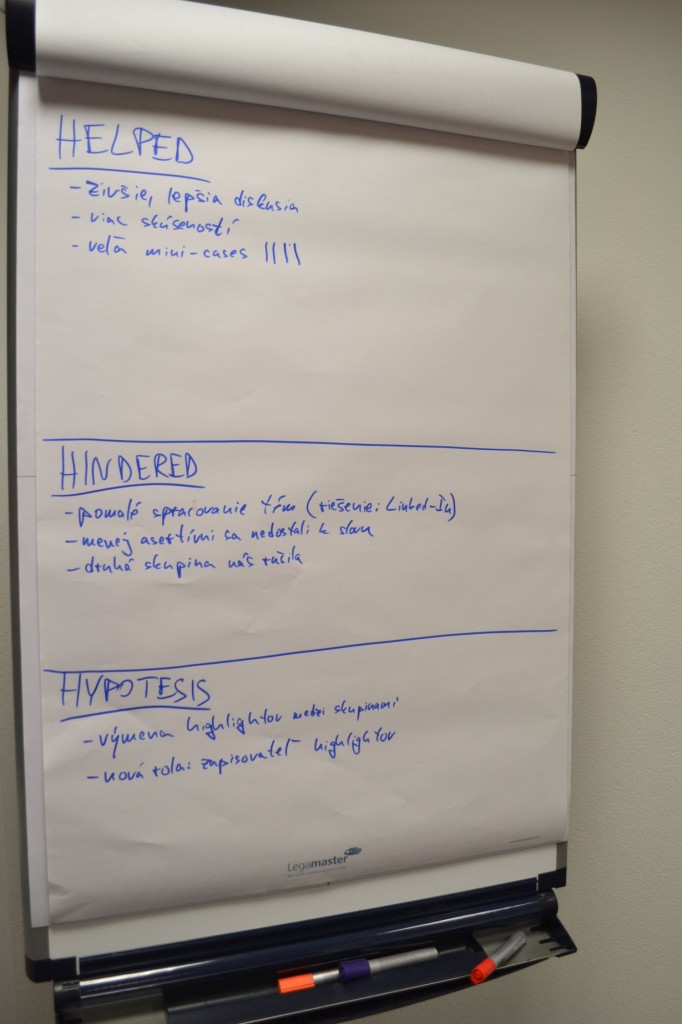 HELPED
- živšie, lepšia diskusia
- viac skúseností
- veľa mini-cases ||||
HINDERED
- pomalé spracovanie tém (riešenie: Linked-In)
- menej asertívni sa nedostali k slovu
- druhá skupina nás rušila
HYPOTESIS
- výmena highlightov medzi skupinami
- nová rola: zapisovateľ highlightov
Legamaster